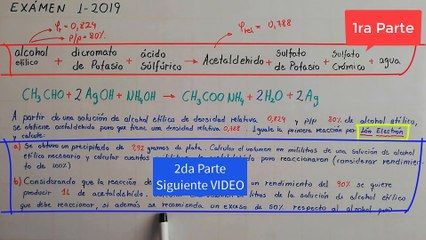 EXÁMEN 1-2019
ρr = 0,824
P/P = 80%
ρrel = 0,788
1ra Parte
alcohol etílico + dicromato de Potasio + ácido Súlfúrico → Acetaldehido + Sulfato de Potasio + Sulfato Crómico + agua
CH₃CHO + 2AgOH + NH₄OH → CH₃COONH₄ + 2H₂O + 2Ag
A partir de una solución de alcohol etílico de densidad relativa 0,824 y P/P 80% de alcohol etílico,
se obtiene acetaldehido puro que tiene una densidad relativa 0,788. Iguale la primera reacción por Ión Electrón
y calcule:
a) Se obtuvo un precipitado de 7,92 gramos de plata. Calcular el volumen en mililitros de una solución de alcohol
etílico necesario y calcular cuantos
para reaccionaron (considerar rendimiento
de 100%)
2da Parte
Siguiente VIDEO
b) Considerando que la reacción de
un rendimiento del 90% se quiere
producir 1L de acetaldehido.
litros de la solución de alcohol etílico
que debe reaccionar, si además se recomienda un exceso de 50% respecto al alcohol puro